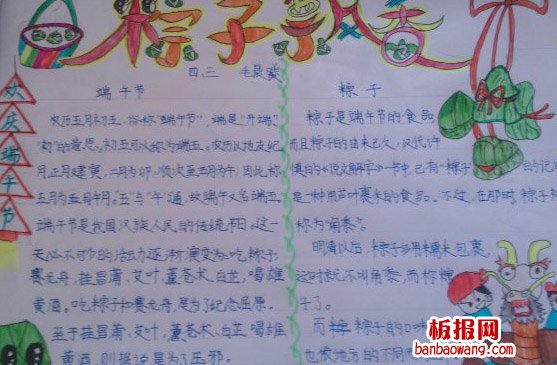 粽子飘香
四、三
欢庆端午节
端午节
农历五月初五,俗称"端午节",端是"开端"、
"初"的意思。初五可以称为端五。农历以地支纪
月正月建寅,二月为卯,顺次至五月为午,因此称
五月为午月,"五"与"午"通,故端午又名端五
端午节是我国汉族人民的传统节日。这一
天必不可少的活动逐渐演变为:吃粽子,
赛龙舟,挂菖蒲、艾叶,薰苍术、白芷,喝雄
黄酒。吃粽子和赛龙舟,是为了纪念屈原
至于挂菖蒲、艾叶,薰苍术、白芷,喝雄
黄酒,则据说是为了压邪。
粽子
粽子是端午节的食品
而且粽子的由来已久,汉代许
慎的《说文解字》一书中,已有"粽子 的记
是一种用芦叶裹米的食品。不过,在那时,粽子
称为"角黍"。
明清以后,粽子多用糯米包裹,
这时就不叫角黍,而称粽
子了。
而 粽子的口味
也依地方的不同
板报网
banbaowang.com